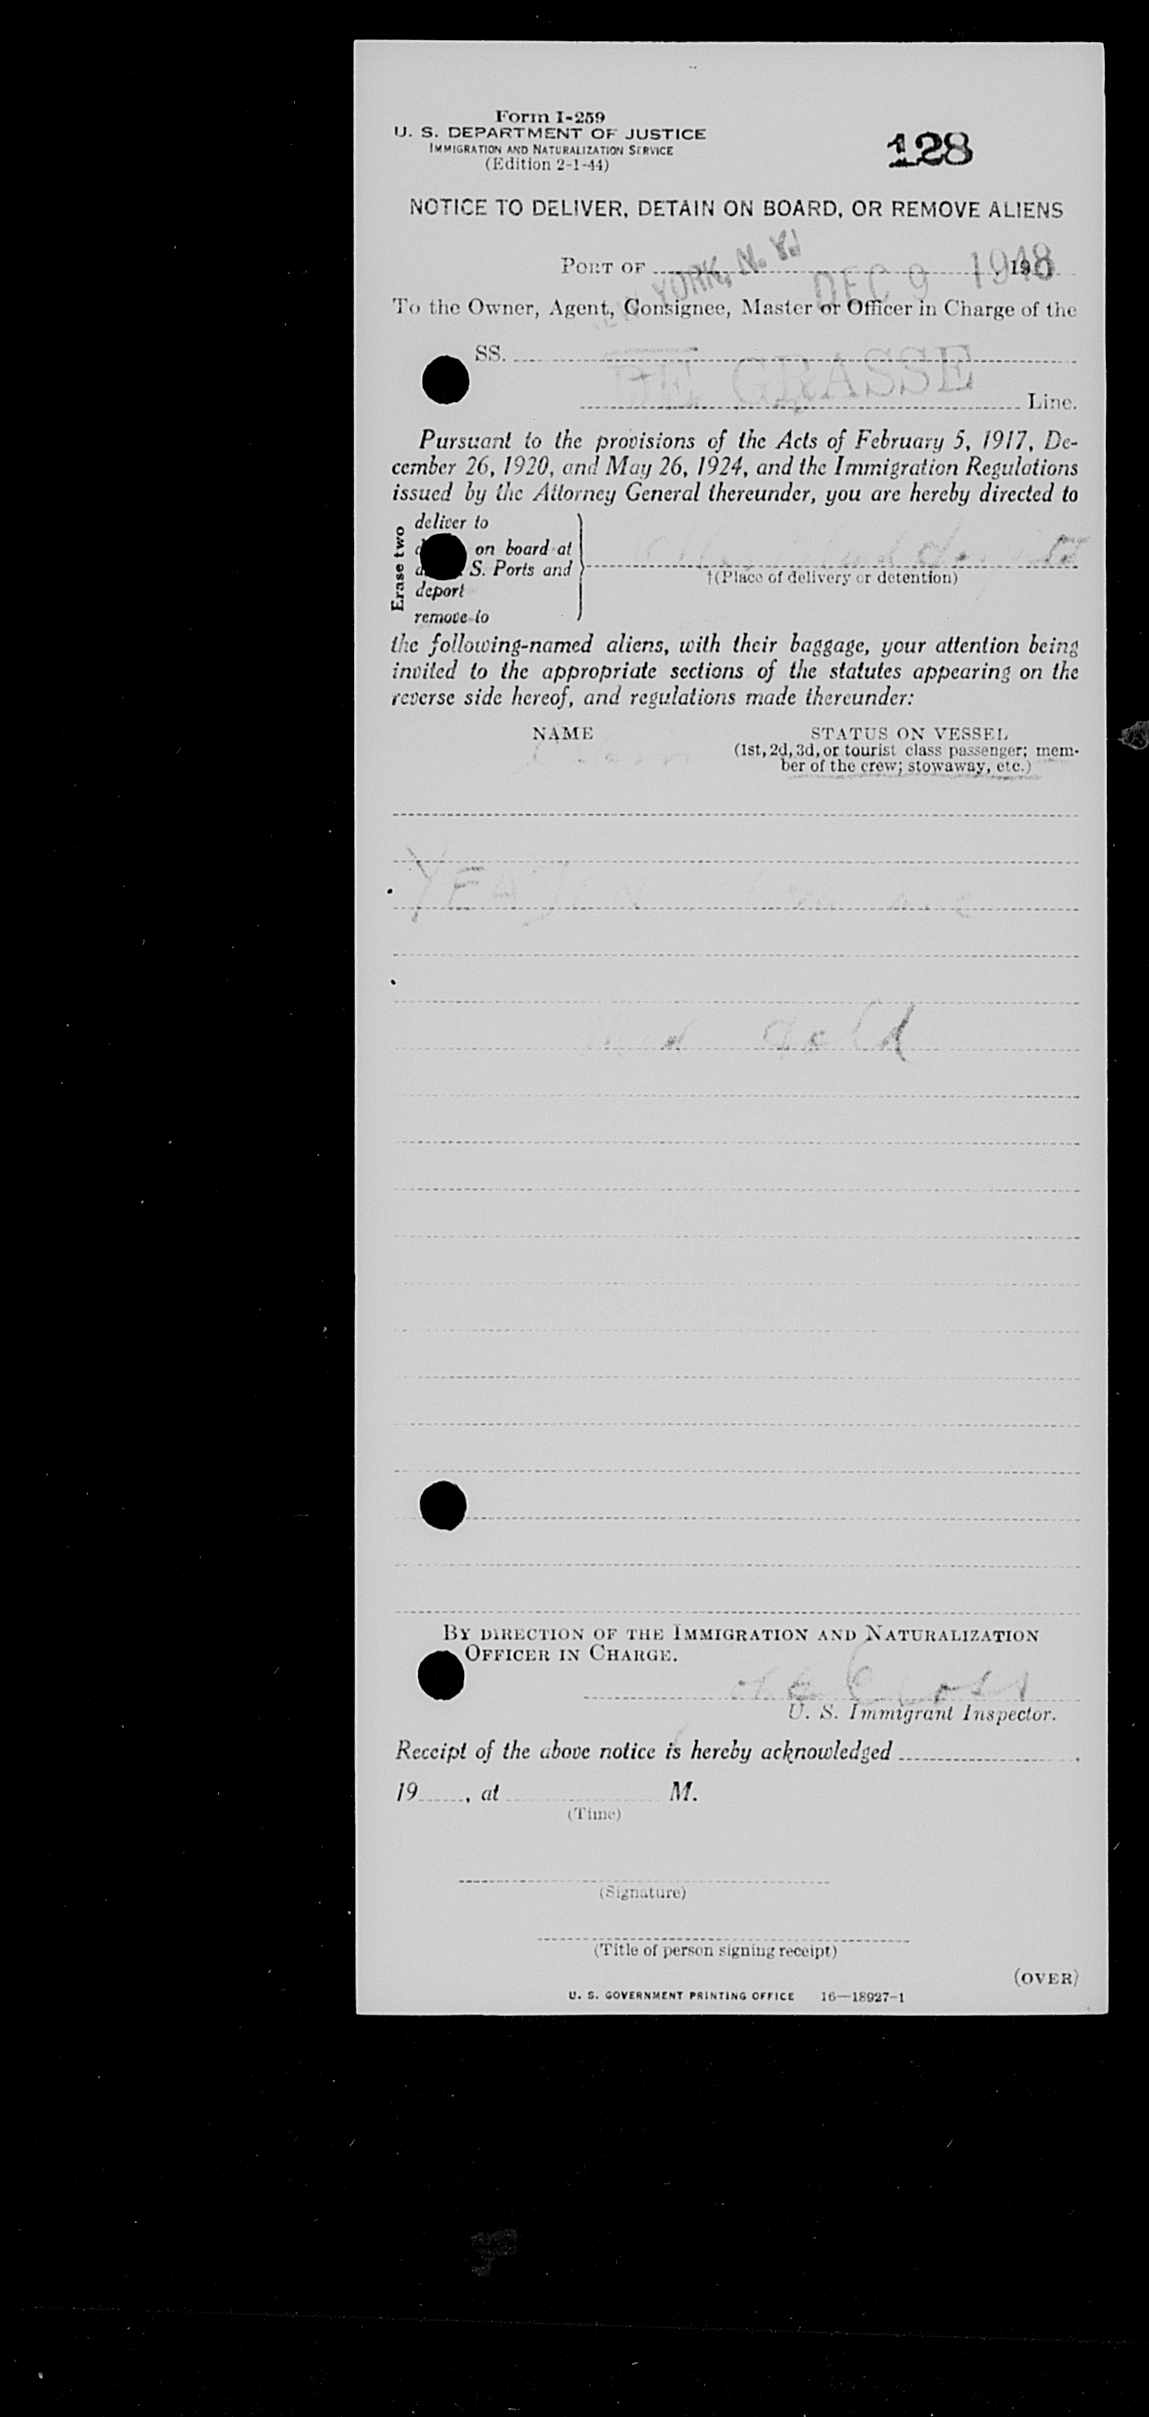 Form I-259
U. S. DEPARTMENT OF JUSTICE
IMMIGRATION AND NATURALIZATION SERVICE
(Edition 2-1-44)
128
NOTICE TO DELIVER, DETAIN ON BOARD, OR REMOVE ALIENS
PORT OF YORK, N. Y. DEC 9 1948, 19
To the Owner, Agent, Consignee, Master or Officer in Charge of the
SS. DE GRASSE
Line.
Pursuant to the provisions of the Acts of February 5, 1917, De-
cember 26, 1920, and May 26, 1924, and the Immigration Regulations
issued by the Attorney General thereunder, you are hereby directed to
Erase two
deliver to
on board at
S. Ports and
deport
remove to
†(Place of delivery or detention)
the following-named aliens, with their baggage, your attention being
invited to the appropriate sections of the statutes appearing on the
reverse side hereof, and regulations made thereunder:
NAME STATUS ON VESSEL
(1st, 2d, 3d, or tourist class passenger; mem-
ber of the crew; stowaway, etc.)
BY DIRECTION OF THE IMMIGRATION AND NATURALIZATION
OFFICER IN CHARGE.
U. S. Immigrant Inspector.
Receipt of the above notice is hereby acknowledged
19 , at M.
(Time)
(Signature)
(Title of person signing receipt)
(OVER)
U. S. GOVERNMENT PRINTING OFFICE 16—18927-1